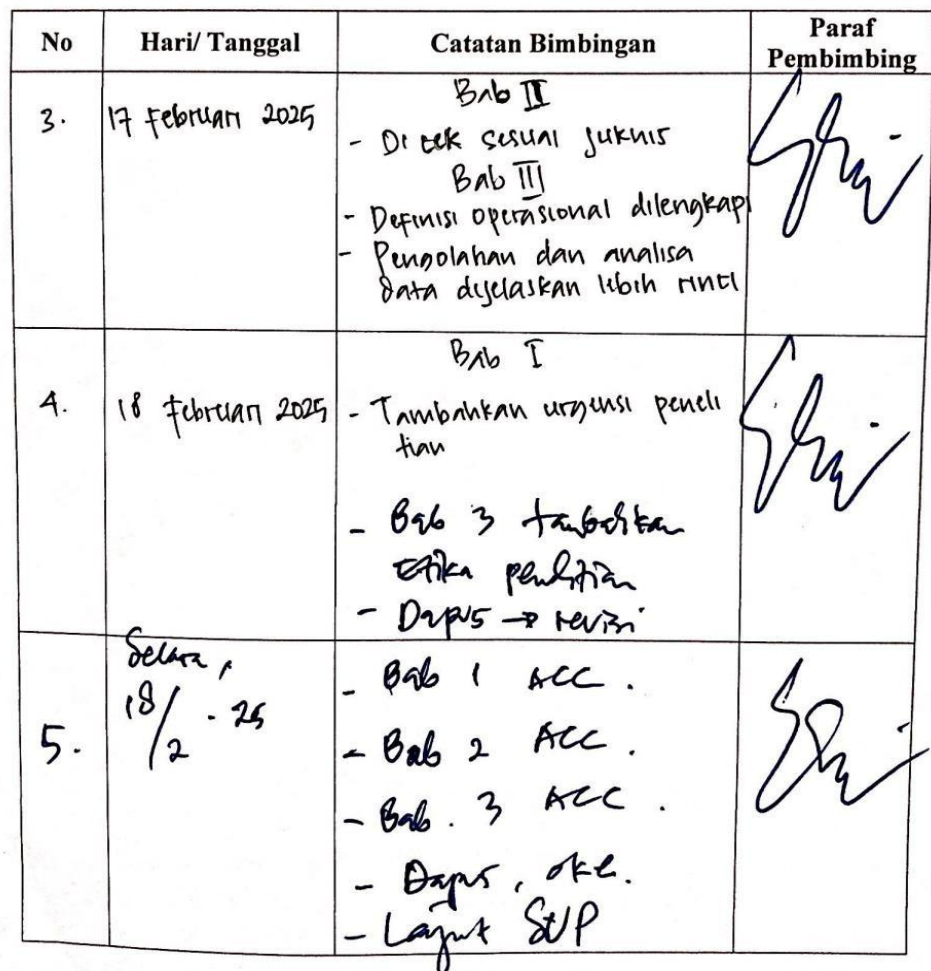 No Hari/ Tanggal Catatan Bimbingan Paraf
Pembimbing
3. 17 Februari 2025
Bab II
- Di cek sesuai juknis
Bab III
- Definisi operasional dilengkapi
- Pengolahan dan analisa
data dijelaskan lebih rinci
4. 18 Februari 2025
Bab I
- Tambahkan urgensi peneli
tian
- Bab 3 tambahkan
Etika penelitian
- Dapus → revisi
5. Selasa,
18/2 - 25
- Bab 1 ACC.
- Bab 2 ACC.
- Bab. 3 ACC.
- Dapus, oke.
- Lanjut SUP